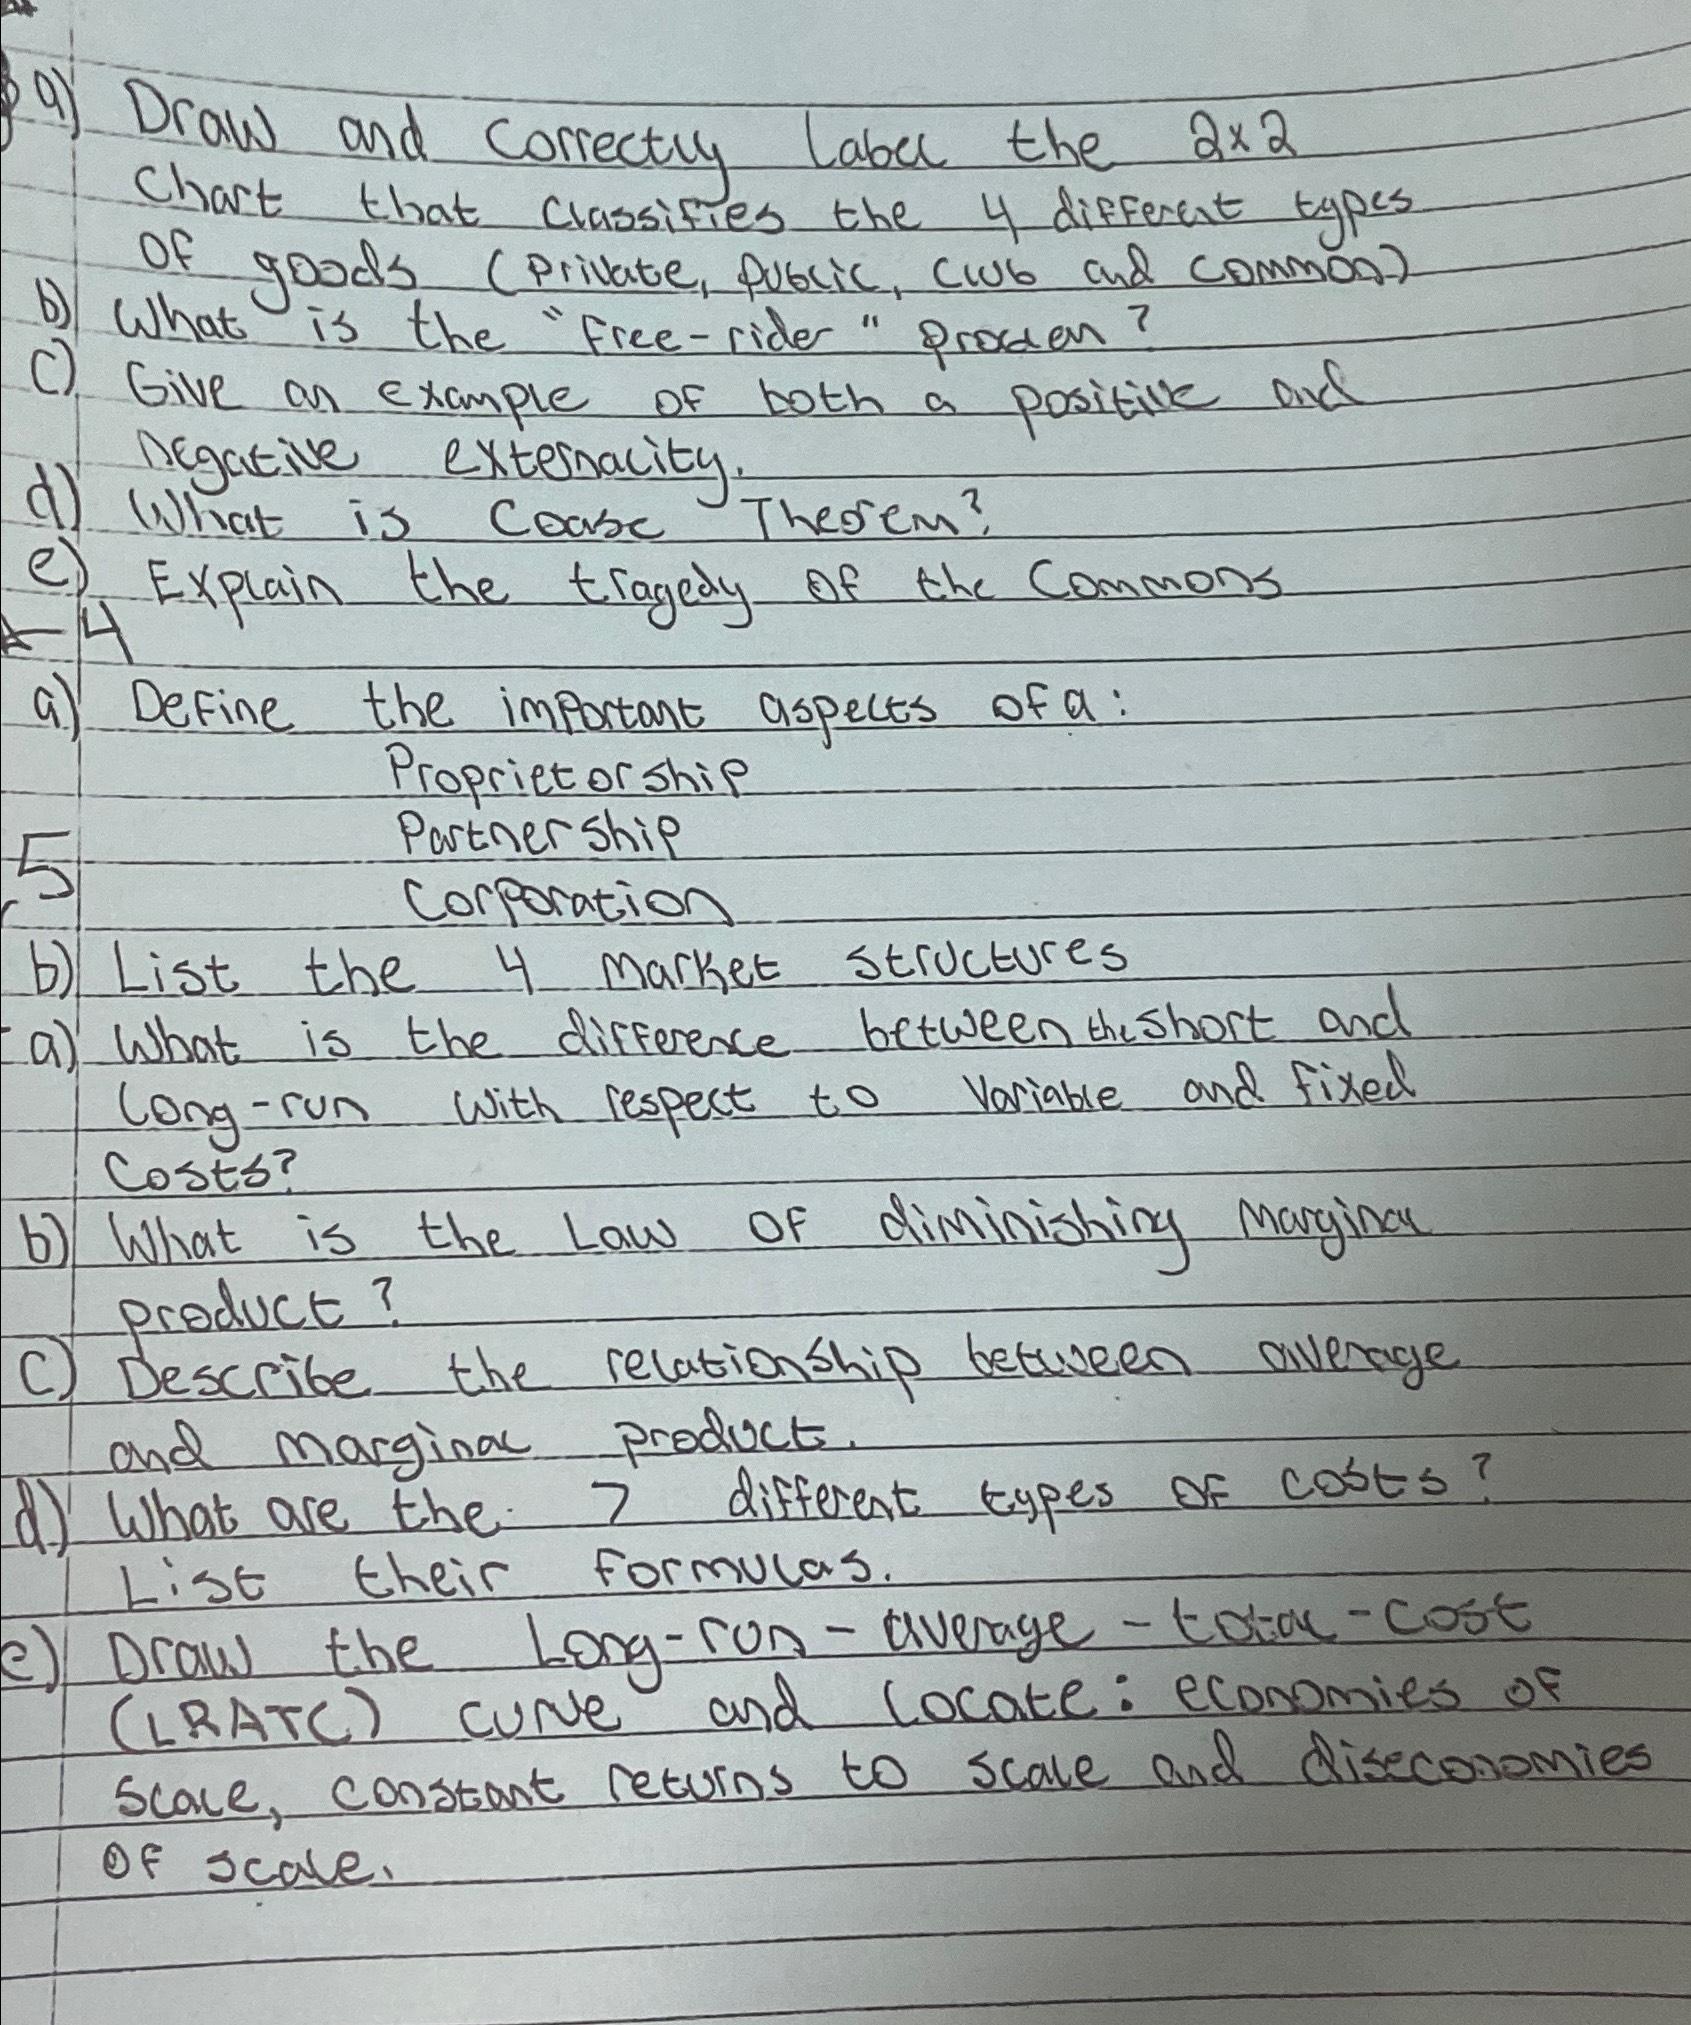 a) Draw and correctly label the 2x2
Chart that classifies the 4 different types
OF goods (private, public, club and common)
b) What is the "free-rider" problem?
c) Give an example OF both a positive and
negative externality.
d) What is Coase Theorem?
e) Explain the tragedy OF the Commons
4
a) Define the important aspects of a:
Proprietorship
Partnership
5
Corporation
b) List the 4 market structures
a) What is the difference between the short and
long-run with respect to variable and fixed
Costs?
b) What is the Law OF diminishing marginal
product?
c) Describe the relationship between average
and marginal product.
d) What are the 7 different types OF costs?
List their formulas.
e) Draw the Long-run-average-total-cost
(LRATC) curve and locate: economies OF
scale, constant returns to scale and diseconomies
OF scale.